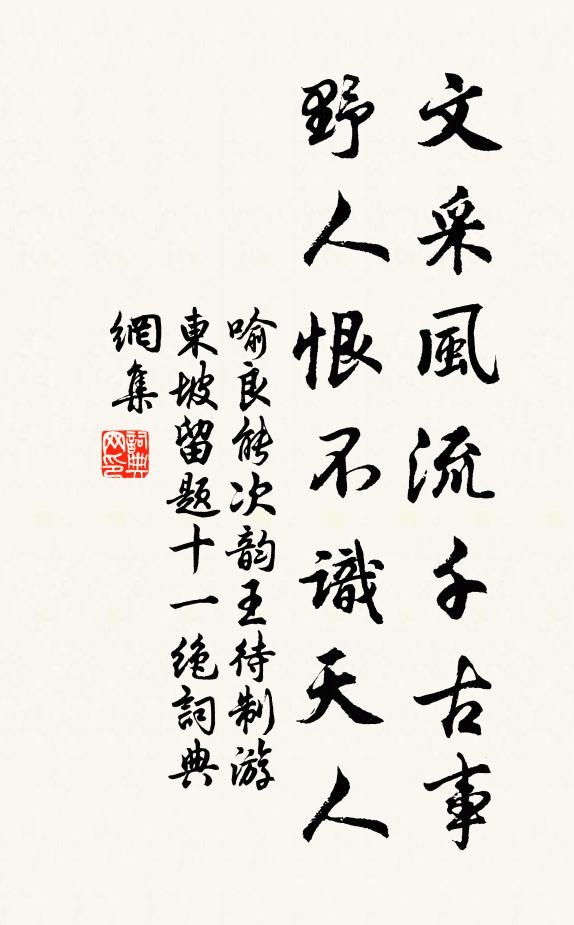 文采風流千古事
野人恨不識天人
喻良能次韵王待制游
東坡留題十一绝詞典
網集
詞典
网印